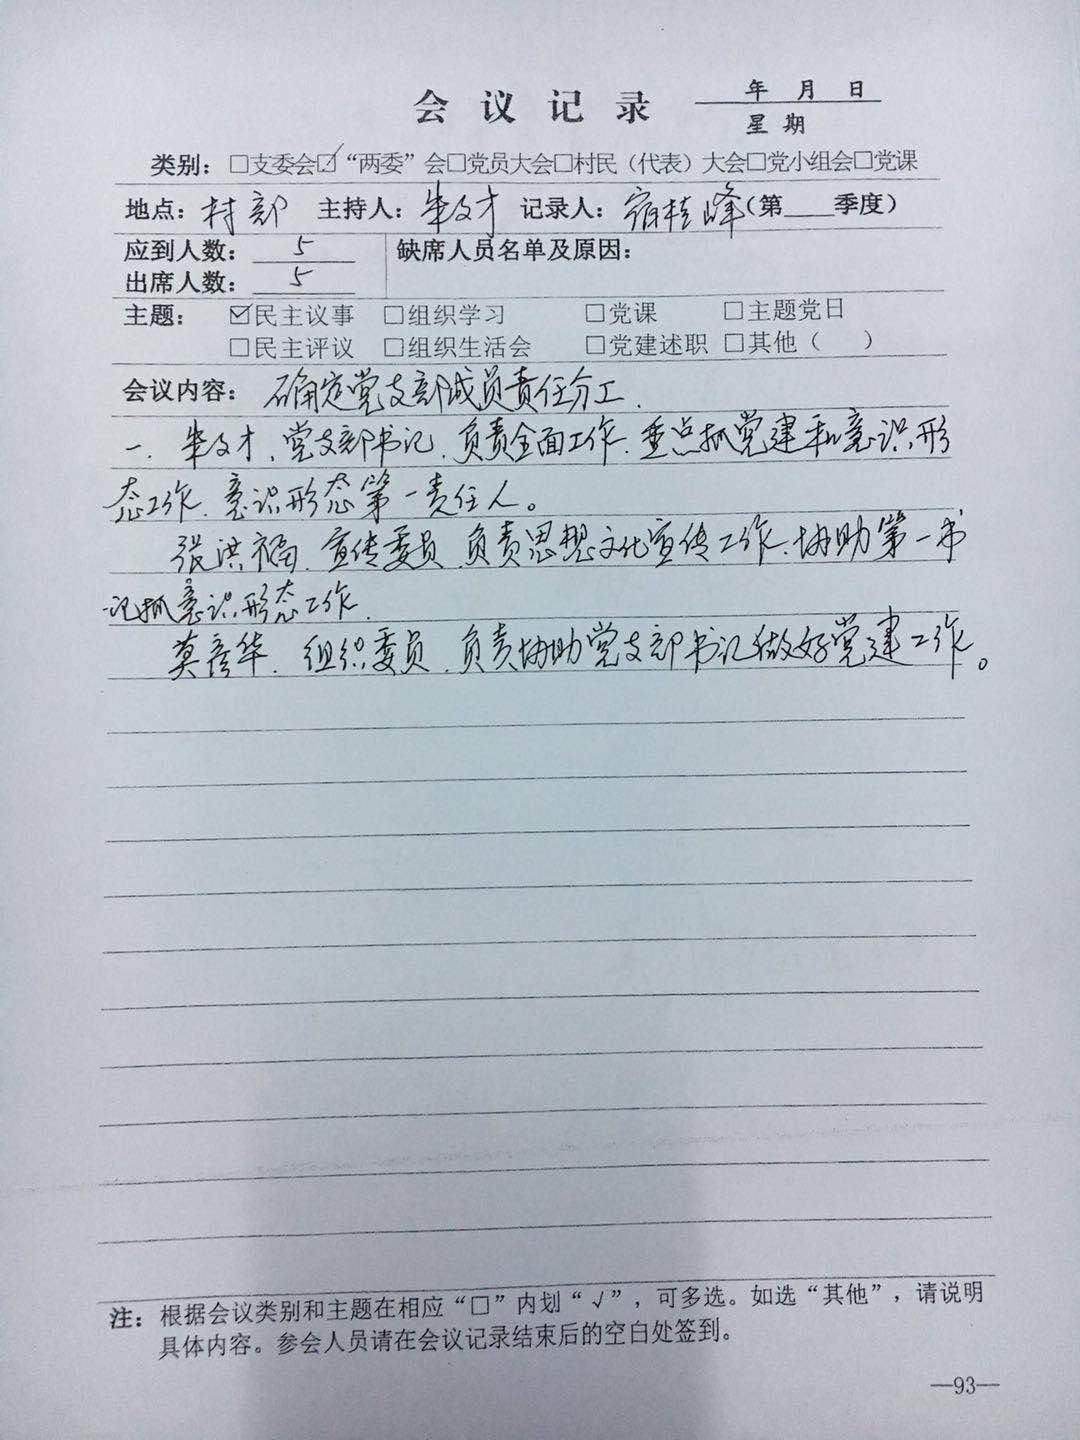 会议记录
年 月 日
星期
类别：□支委会☑“两委”会□党员大会□村民（代表）大会□党小组会□党课
地点：村部 主持人：牟文才 记录人：宿桂峰（第___季度）
应到人数：5 缺席人员名单及原因：
出席人数：5
主题：☑民主议事 □组织学习 □党课 □主题党日
□民主评议 □组织生活会 □党建述职 □其他（ ）
会议内容：确定党支部成员责任分工.
一、牟文才、党支部书记、负责全面工作、重点抓党建和意识形
态工作、意识形态第一责任人。
张洪福、宣传委员、负责思想文化宣传工作、协助第一书
记抓意识形态工作.
莫彦华、组织委员、负责协助党支部书记做好党建工作。
注：根据会议类别和主题在相应“□”内划“√”，可多选。如选“其他”，请说明
具体内容。参会人员请在会议记录结束后的空白处签到。
—93—